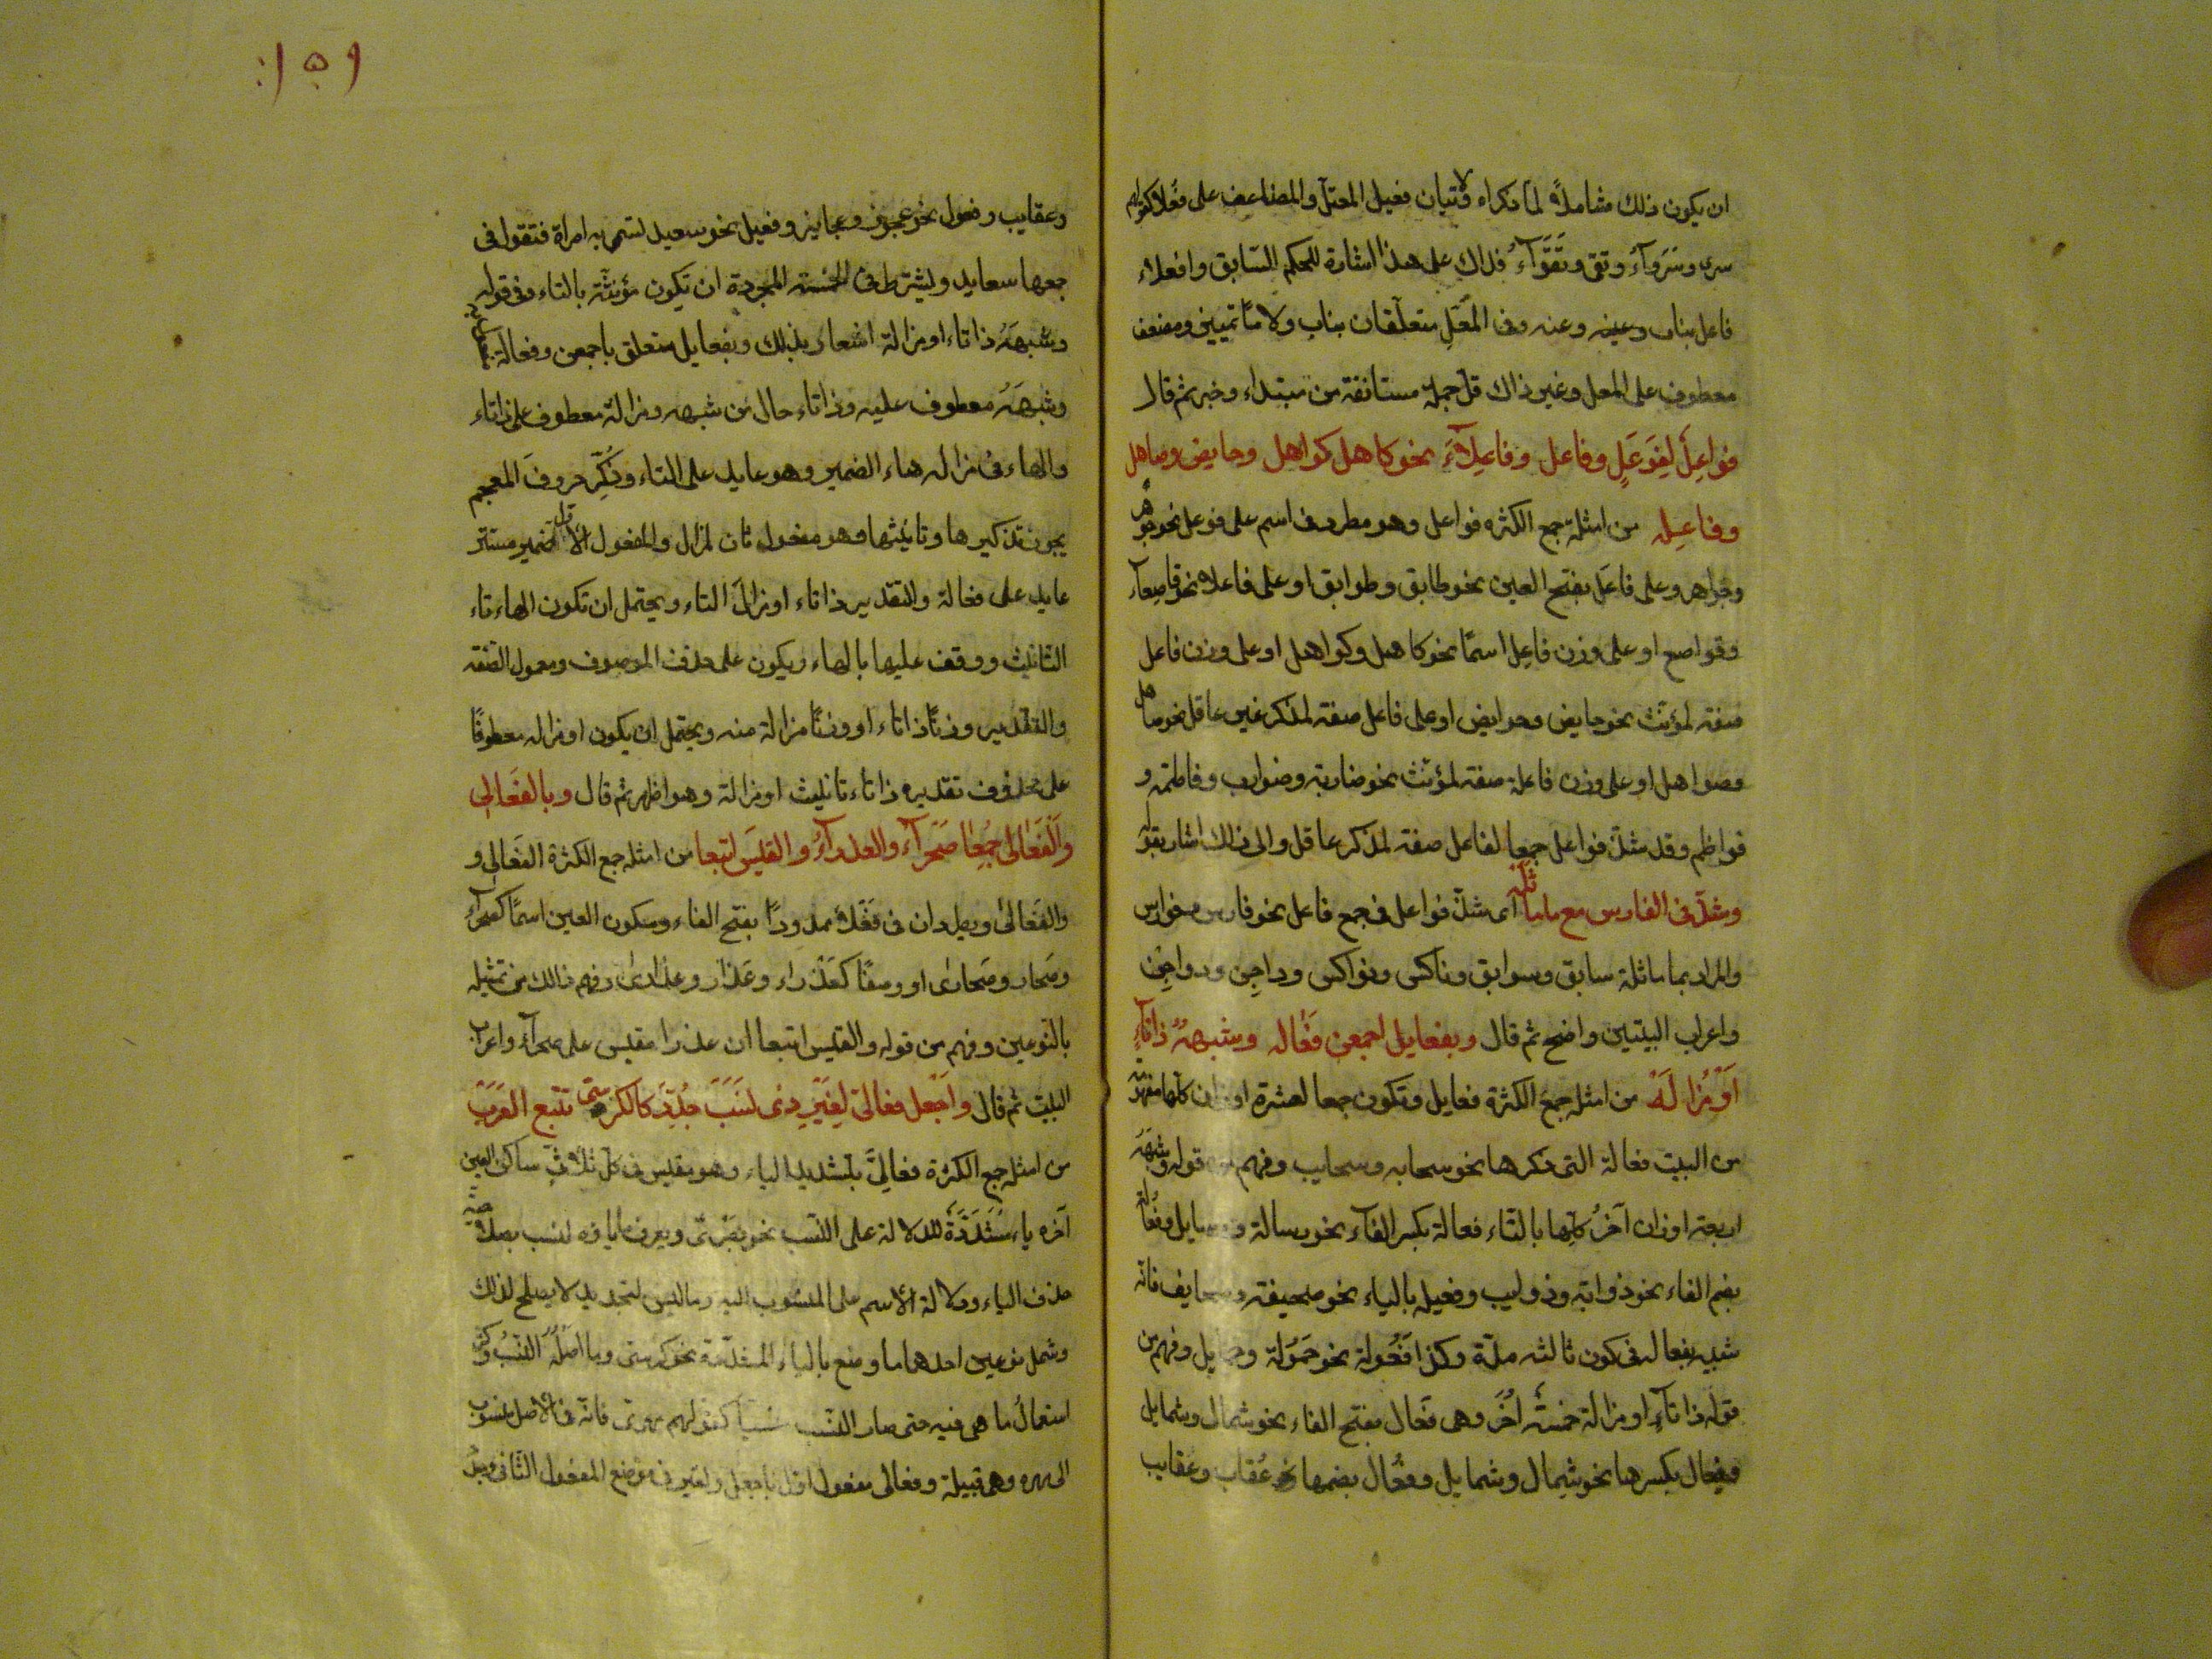 ان يكون ذلك شاملا لما ذكراه ولاتيان فعيل المعتل والمضاعف على فعلا كقولهم
سرى وسرواء وتقى وتقواء فذاك على هذا اشارة للحكم السابق وافعلاء
فاعل بناب وعنه وفى المعل متعلقان بناب ولاما تمييز ومضعف
معطوف على المعل وغير ذاك قل جملة مستانفة من مبتداء وخبر ثم قال
فواعل لفوعل وفاعل وفاعلاء نحو كاهل كواهل وحايض وصاهل
وفاعله من امثلة جمع الكثره فواعل وهو مطرد فى اسم على فوعل نحو جوهر
وجواهر وعلى فاعل بفتح العين نحو طابق وطوابق او على فاعلاء نحو قاصعاء
وقواصع او على وزن فاعل اسما نحو كاهل وكواهل او على وزن فاعل
صفة لمؤنث نحو حايض وحوايض او على فاعل صفة لمذكر غير عاقل نحو صاهل
وصواهل او على وزن فاعلة صفة لمؤنث نحو ضاربة وضوارب وفاطمة و
فواطم وقد شذ فواعل جمعا لفاعل صفة لمذكر عاقل والى ذلك اشار بقوله
وشذ فى الفارس مع ما ماثله اى شذ فواعل فى جمع فاعل نحو فارس وفوارس
والمراد بما ماثلة سابق وسوابق وناكس ونواكس وداجن ودواجن
واعراب البيتين واضح ثم قال وبفعايل اجمعن فعاله وشبهه ذاتاء
او مزاله من امثله جمع الكثرة فعايل وتكون جمعا لعشرة اوزان كلها مفهومة
من البيت فعالة التى ذكرها نحو سحابه وسحايب وفهم من قوله وشبهه
اربعة اوزان آخر كلها بالتاء فعالة بكسر الفاء نحو رسالة ورسايل وفعالة
بضم الفاء نحو ذوابة وذوايب وفعيله بالياء نحو صحيفة وصحايف فانه
شبيه بفعاله فى كون ثالثه مدة وكذا فعولة نحو حمولة وحمايل وفهم من
قوله ذاتاء او مزالة خمسة اخر وهى فعال بفتح الفاء نحو شمال وشمايل
وفعال بكسرها نحو شمال وشمايل وفعال بضمها نحو عقاب وعقايب
١٥١
وعقايب وفعول نحو عجوز وعجايز وفعيل نحو سعيد لتسمى به امراة فتقول فى
جمعها سعايد ويشترط فى الخمسه المجردة ان تكون مؤنثة بالتاء وفى قوله
وشبهه ذاتاء او مزالة اشعار بذلك وبفعايل متعلق باجمعن وفعالة
وشبهه معطوف عليه وذاتاء حال من شبهه ومزالة معطوف على ذاتاء
والهاء فى مزاله هاء الضمير وهو عايد على التاء وذكر حروف المعجم
يجوز تذكيرها وتانيثها وهو مفعول ثان لمزال والمفعول الاول ضمير مستتر
عايد على فعالة والتقدير ذاتاء او مزال التاء ويحتمل ان تكون الهاء تاء
التانيث ووقف عليها بالهاء ويكون على حذف الموصوف ومعمول الصفة
والتقدير وزنا ذاتاء او وزنا مزالة منه ويحتمل ان يكون او مزاله معطوفا
على محذوف تقديره ذاتاء تانيث او مزالة وهو اظهر ثم قال وبالفعالى
والفعالى جمعا صحراء والعذراء والقيس اتبعا من امثله جمع الكثرة الفعالى و
والفعالى ويطردان فى فعلاء ممدودا بفتح الفاء وسكون العين اسما كصحراء
وصحار وصحارى او وصفا كعذراء وعذار وعذارى وفهم ذالك من تمثيله
بالنوعين وفهم من قوله والقيس اتبعا ان عذرا مقيس على صحراء واعراب
البيت ثم قال واجعل فعالى لغير ذى نسب جدد كالكرسى تتبع العرب
من امثله جمع الكثرة فعالى بتشديد الياء وهو مقيس فى كل ثلاثى ساكن العين
آخره ياء مشددة للدلالة على النسب نحو بصرى ويعرف ما ياؤه لنسب بصلاحية
حذف الياء ودلالة الاسم على المنسوب اليه وماليس لتجديد لا يصلح لذلك
وشمل نوعين احدهما ما وضع بالياء المشددة نحو كرسى وما اصله النسب وكثر
استعمال ما هى فيه حتى صار النسب نسيا كقولهم مهرى فانه فى الاصل منسوب
الى مهره وهى قبيلة وفعالى مفعول اول باجعل ولغير فى موضع المفعول الثانى